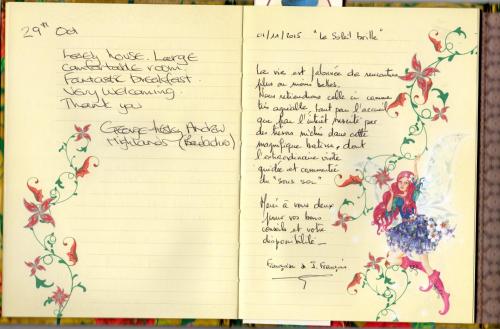 29th Oct
Lovely house. Large
comfortable room
Fantastic breakfast.
Very welcoming
Thank you
George Andrew
01/11/2015 "Le Soleil brille"
La vie est jalonnée de rencontres
plus ou moins belles.
Nous retiendrons celle ci comme
très agréable tant par l'accueil
que par l'intérêt suscité par
des trésors nichés dans cette
magnifique batisse, dont
l'extraordinaire visite
guidée et commentée
du "sous sol"
Merci à vous deux
pour vos bons
conseils et votre
disponibilité_
Françoise & J. François